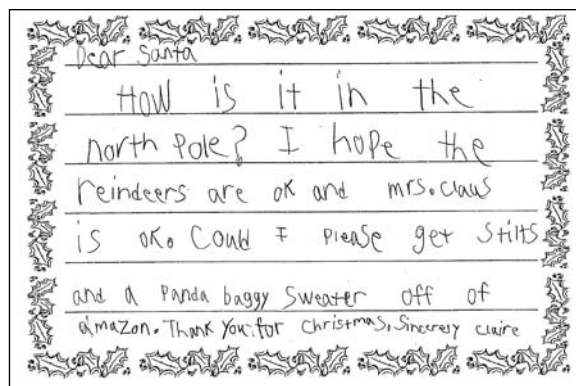 Dear Santa
How is it in the
north Pole? I hope the
reindeers are ok and mrs. claus
is ok. Could I Please get Stilts
and a Panda baggy Sweater off of
amazon. Thank You. for Christmas. Sincerely claire